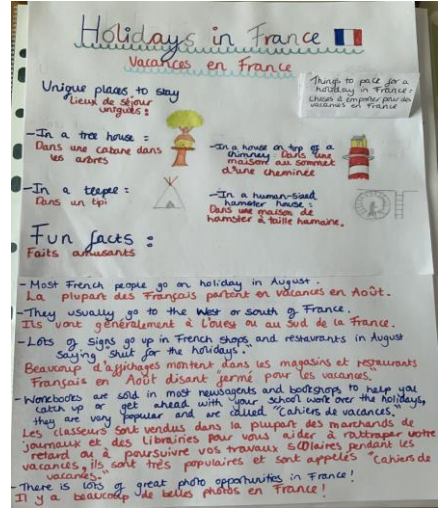 Holidays in France
Vacances en France
Things to pack for a
holiday in France:
Choses à emporter pour des
vacances en France
Unique places to stay
Lieux de séjour
uniques:
-In a tree house =
Dans une cabane dans
les arbres
-In a house on top of a
chimney: Dans une
maison au sommet
d'une cheminée
-In a teepee:
Dans un tipi
-In a human-sized
hamster house:
Dans une maison de
hamster à taille humaine.
Fun facts:
Faits amusants
-Most French people go on holiday in August.
La plupart des Français partent en vacances en Août.
-They usually go to the West or south of France.
Ils vont généralement à l'ouest ou au sud de la France.
-Lots of signs go up in French shops and restaurants in August
saying "shut for the holidays."
Beaucoup d'affichages montent dans les magasins et restaurants
Français en Août disant "fermé pour les vacances."
-Workbooks are sold in most newsagents and bookshops to help you
catch up or get ahead with your school work over the holidays,
they are very popular and are called "Cahiers de vacances."
Les classeurs sont vendus dans la plupart des marchands de
journaux et des Librairies pour vous aider à rattraper votre
retard ou à poursuivre vos travaux scolaires pendant les
vacances, ils sont très populaires et sont appelés "Cahiers de
vacances."
-There is lots of great photo opportunities in France!
Il y a beaucoup de belles photos en France!